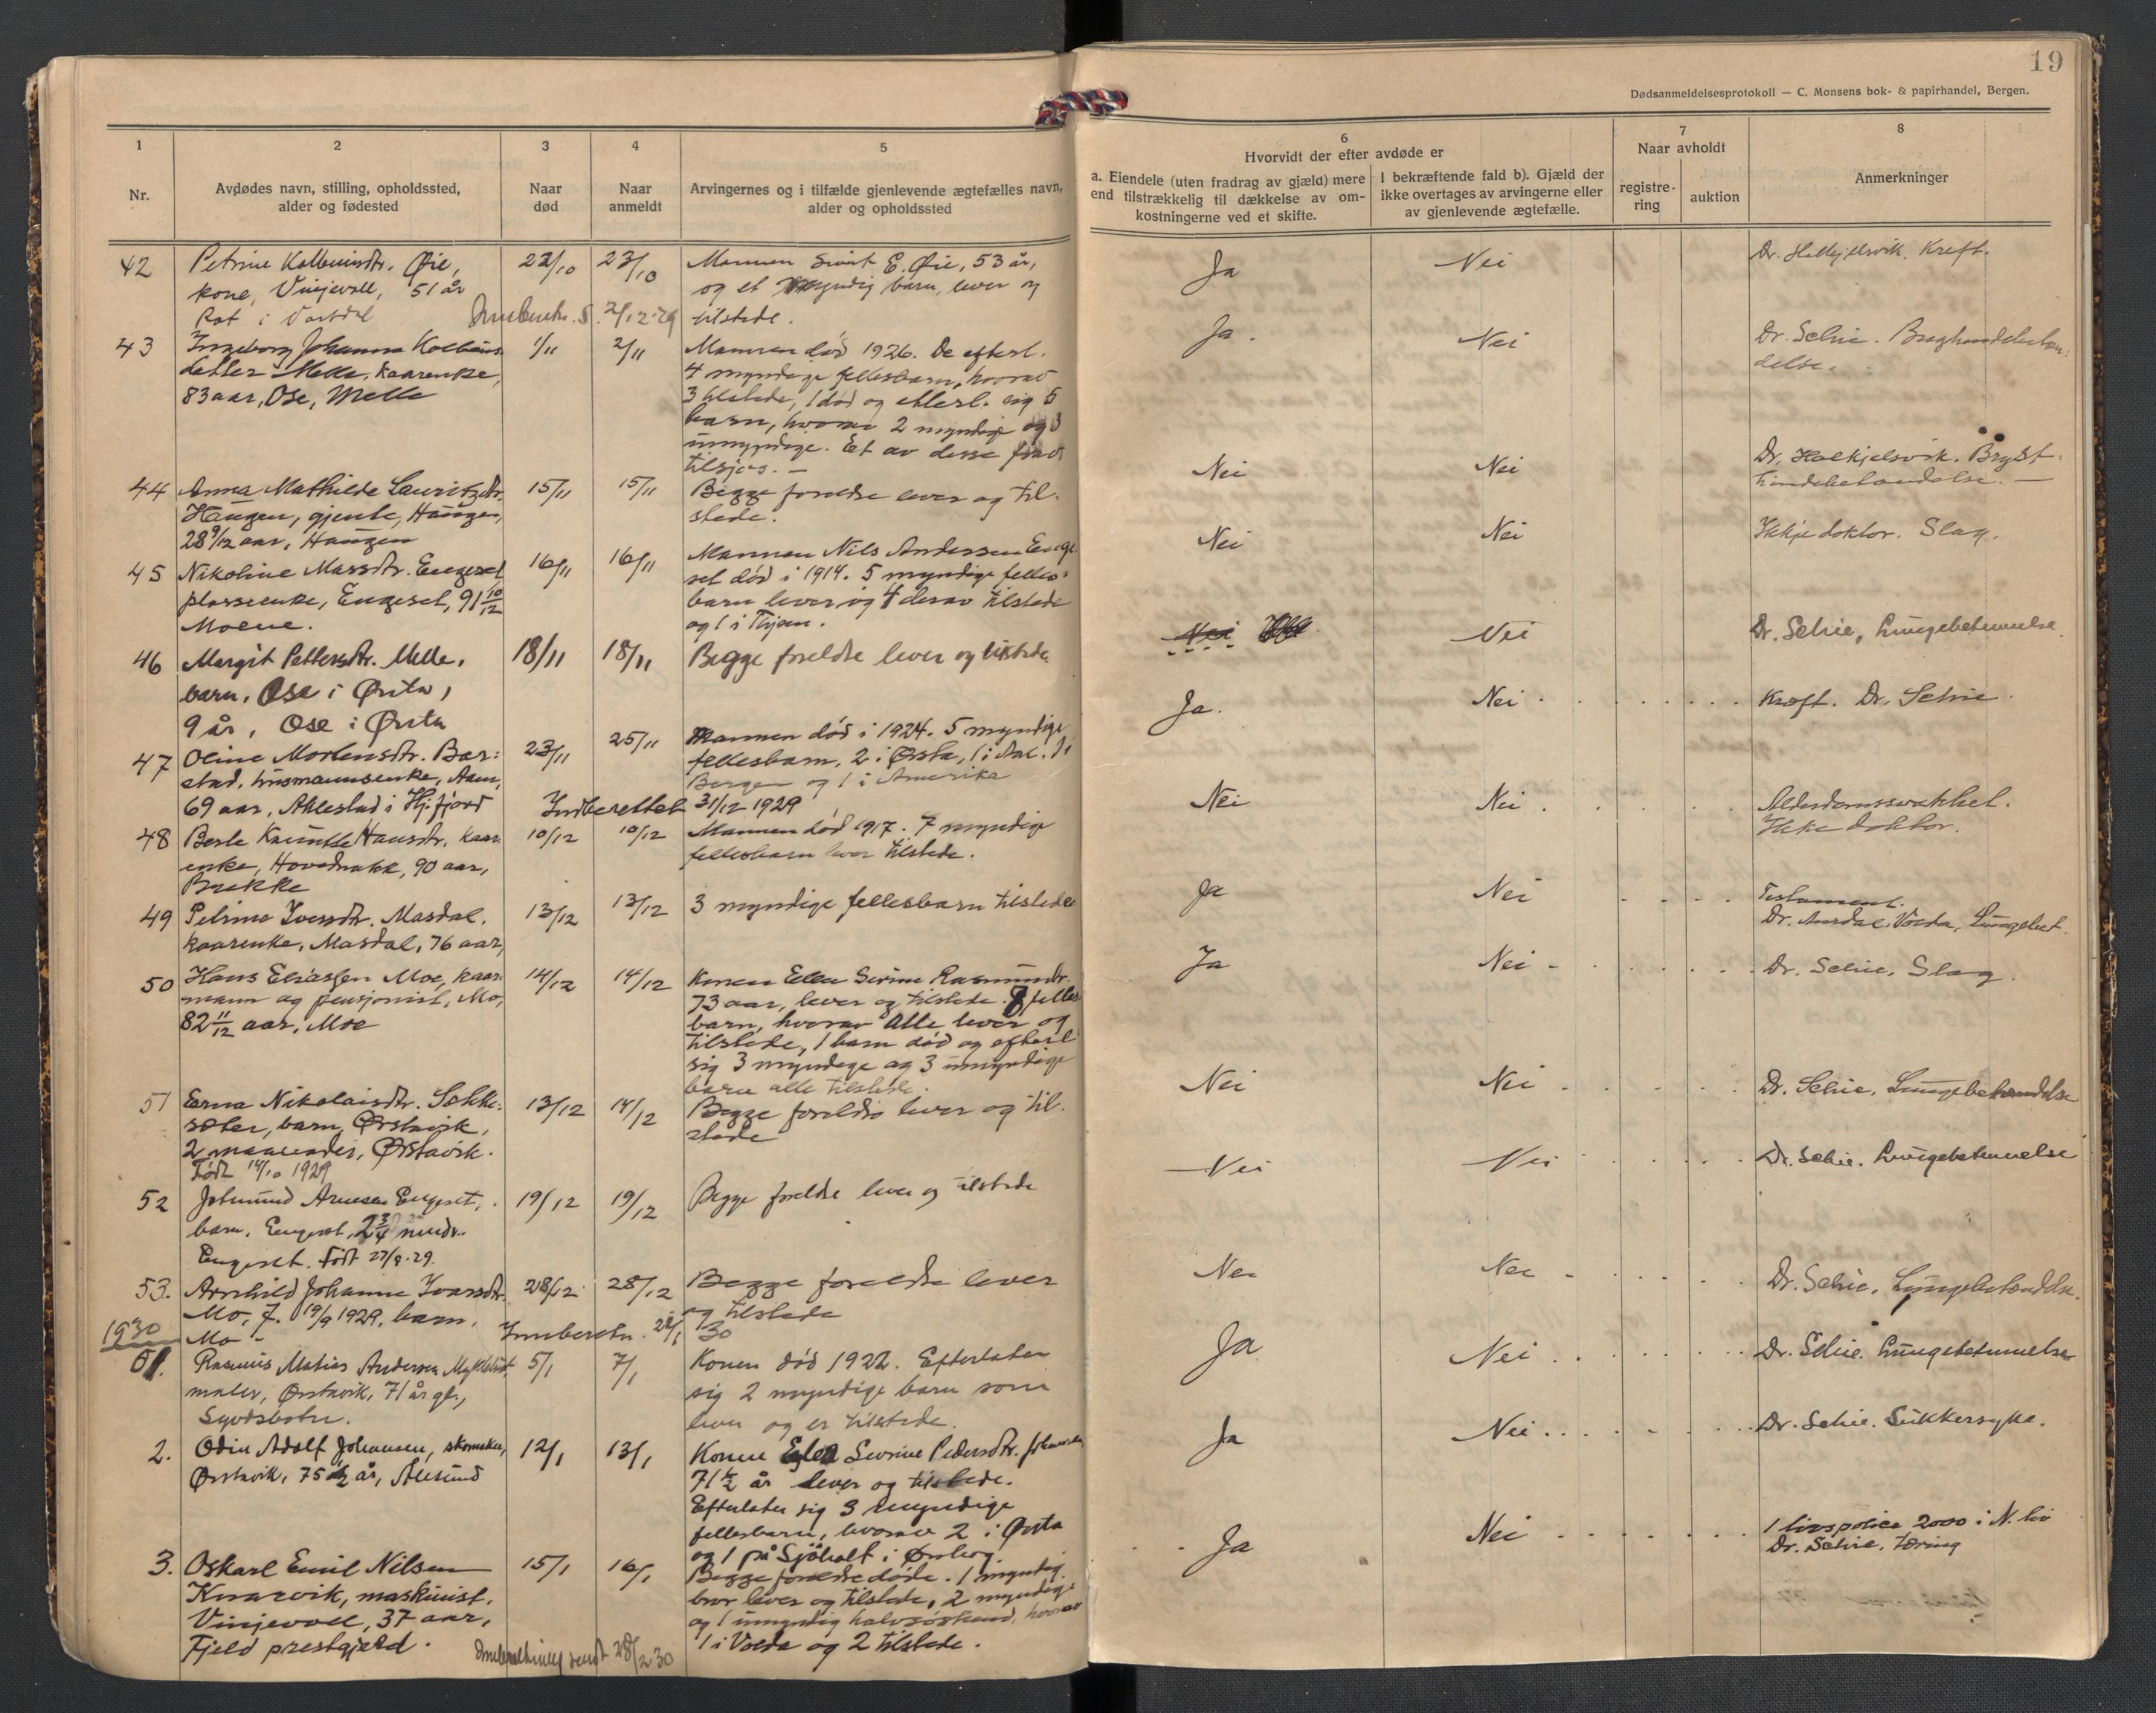 19
Dødsanmeldelsesprotokoll — C. Monsens bok- & papirhandel, Bergen.
1
Nr.
2
Avdødes navn, stilling, opholdssted,
alder og fødested
3
Naar
død
4
Naar
anmeldt
5
Arvingernes og i tilfælde gjenlevende ægtefælles navn,
alder og opholdssted
6
Hvorvidt der efter avdøde er
a. Eiendele (uten fradrag av gjæld) mere
end tilstrækkelig til dækkelse av om-
kostningerne ved et skifte.
I bekræftende fald b). Gjæld der
ikke overtages av arvingerne eller
av gjenlevende ægtefælle.
7
Naar avholdt
registre-
ring
auktion
8
Anmerkninger
42
Petrine Øie,
kone, Vinjevoll, 51 år
i Vartdal
22/10
23/10
Mannen Sivert E. Øie, 53 år,
og et myndig barn, lever og
tilstede.
Ja
Nei
Kreft.
2/12-29
43
Ingeborg Johanna
Melle, kaarenke,
83 aar, Ose, Melle
1/11
2/11
Mannen død 1926. De efterl.
4 myndige fellesbarn, hvorav
3 tilstede, 1 død og etterl. sig 5
barn, hvorav 2 myndige og 3
umyndige. Et av disse
tilsjøs. —
Ja.
Nei
Dr. Selvie.
44
Anna Mathilde Lauritzdtr.
Haugen, gjente, Haugen,
28 9/12 aar, Haugen
15/11
15/11
Begge foreldre lever og til-
stede.
Nei
Nei
Dr. Holkjelsvik. Bryst-
45
Nikoline Massdtr. Engeset
plassenke, Engeset, 91 10/12
Moene.
16/11
16/11
Mannen Nils Andersen Enge
set død i 1914. 5 myndige felles-
barn lever og 4 derav tilstede
og 1 i
Nei
Nei
Ikkje doktor. Slag.
46
Margit Pettersdtr. Melle,
barn, Ose i Ørsta,
9 år, Ose i Ørsta
18/11
18/11
Begge foreldre lever og tilstede.
Nei
Nei
Dr. Selvie, Lungebetennelse
47
Oline Mortensdtr. Bar-
stad, husmannsenke, Aam,
69 aar, Aklestad i Hj.fjord
23/11
25/11
Mannen død i 1924. 5 myndige
fellesbarn, 2 i Ørsta, 1 i Aal. 1 i
Bergen og 1 i Amerika
Ja.
Nei
Kreft. Dr. Selvie
Indberettet 31/12 1929
48
Berte Knutte Hansdtr. kaar-
enke, 90 aar,
Brekke
10/12
10/12
Mannen død 1917. 7 myndige
fellesbarn tilstede.
Nei
Nei
Alderdomssvakhet.
Ikke doktor.
49
Petrine Iversdtr. Masdal,
kaarenke, Masdal, 76 aar,
13/12
13/12
3 myndige fellesbarn tilstede
Ja
Nei
Testament.
Dr. Aardal, Volda, Lungebet.
50
Hans Eliassen Moe, kaar-
mann og pensjonist, Mo,
82 11/12 aar, Moe
14/12
14/12
Konen Ellen Serine Rasmusdtr.
73 aar, lever og tilstede. 8 felles
barn, hvorav alle lever og
tilstede, 1 barn død og efterl
sig 3 myndige og 3 umyndige
barn alle tilstede.
Ja
Nei
Dr. Selvie, Slag
51
Erna Nikolaisdtr. Sekke-
seter, barn, Ørstavik,
2 maaneder, Ørstavik.
Født 14/10 1929
13/12
14/12
Begge foreldre lever og til-
stede
Nei
Nei
Dr. Selvie, Lungebetendelse
52
Johmund Arnesen Engeset,
barn, Engeset, 2 3/4 mndr.
Engeset. født 27/9-29.
19/12
19/12
Begge foreldre lever og tilstede
Nei
Nei
Dr. Selvie. Lungebetennelse
53.
Arnhild Johanne Ivarsdtr.
Mo, f. 19/9 1929, barn,
Mo -
28/12
28/12
Begge foreldre lever
og tilstede
Nei
Nei
Dr. Selvie, Lungebetendelse.
30
1930
01.
Rasmus Matias Andersen Myklebust,
maler, Ørstavik, 71 år gl.,
5/1
7/1
Konen død 1922. Efterlater
sig 2 myndige barn som
lever og er tilstede.
Ja
Nei
Dr. Selvie. Lungebetennelse
2.
Odin Adolf Johansen, skomaker,
Ørstavik, 75 1/2 år, Ålesund
12/1
13/1
Konen Severine Pedersdtr. Johansen
71 1/2 år lever og tilstede.
Efterlater sig 3 myndige
fellesbarn, hvorav 2 i Ørsta
og 1 på Sjøholt i Ørskog.
Ja
Nei
Dr. Selvie. Sukkersyke.
3.
Oskarl Emil Nilsen
Knarvik, maskinist,
Vinjevoll, 37 aar,
Fjeld prestgjeld.
15/1
16/1
Begge foreldre døde. 1 myndig
bror lever og tilstede, 2 myndige
og 1 umyndig halvsøskend, hvorav
1 i Volda og 2 tilstede.
Ja
Nei
1 livspolice 2000 i N. liv
Dr. Selvie, tæring
Innberetning sendt 28/2-30